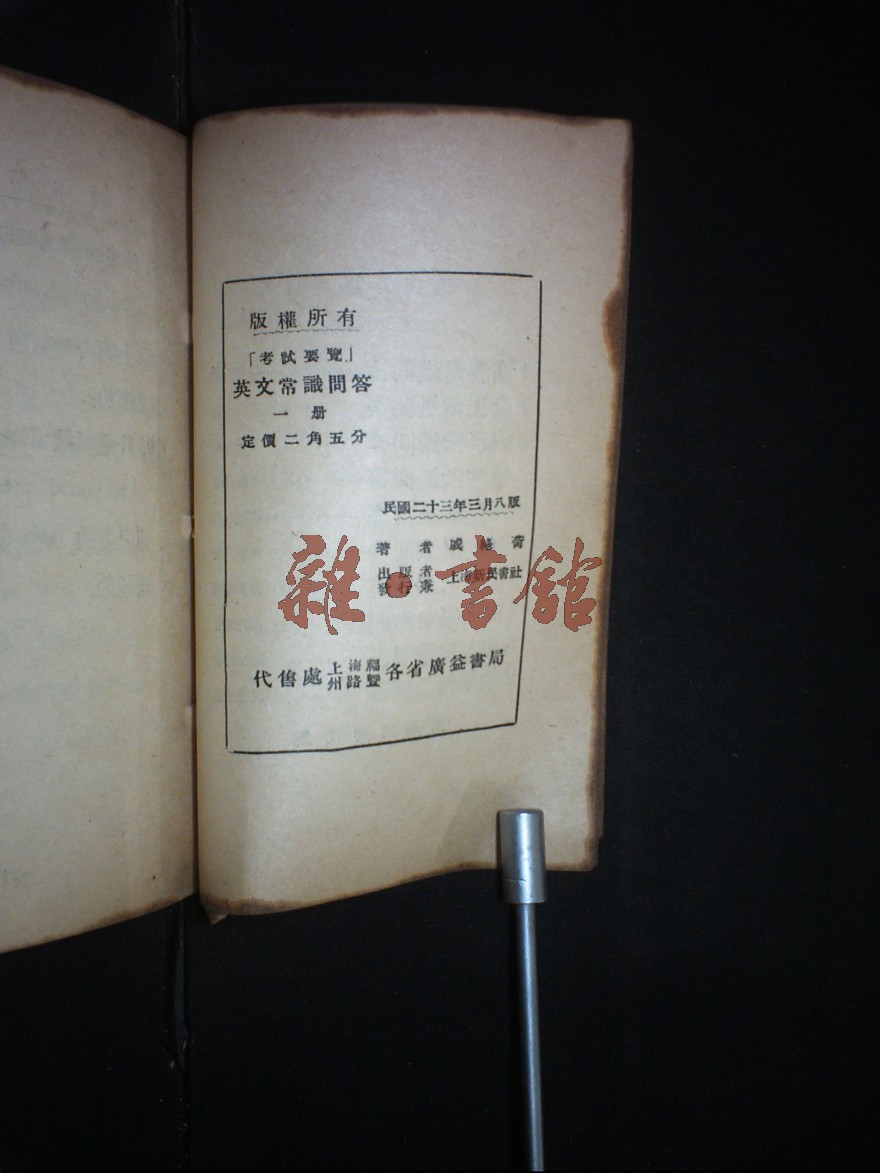 版權所有
「考試要覽」
英文常識問答
一册
定價二角五分
民國二十三年三月八版
著者戚
出版者
發行兼
上海新民書社
代售處上海福州路暨各省廣益書局
雜·書館